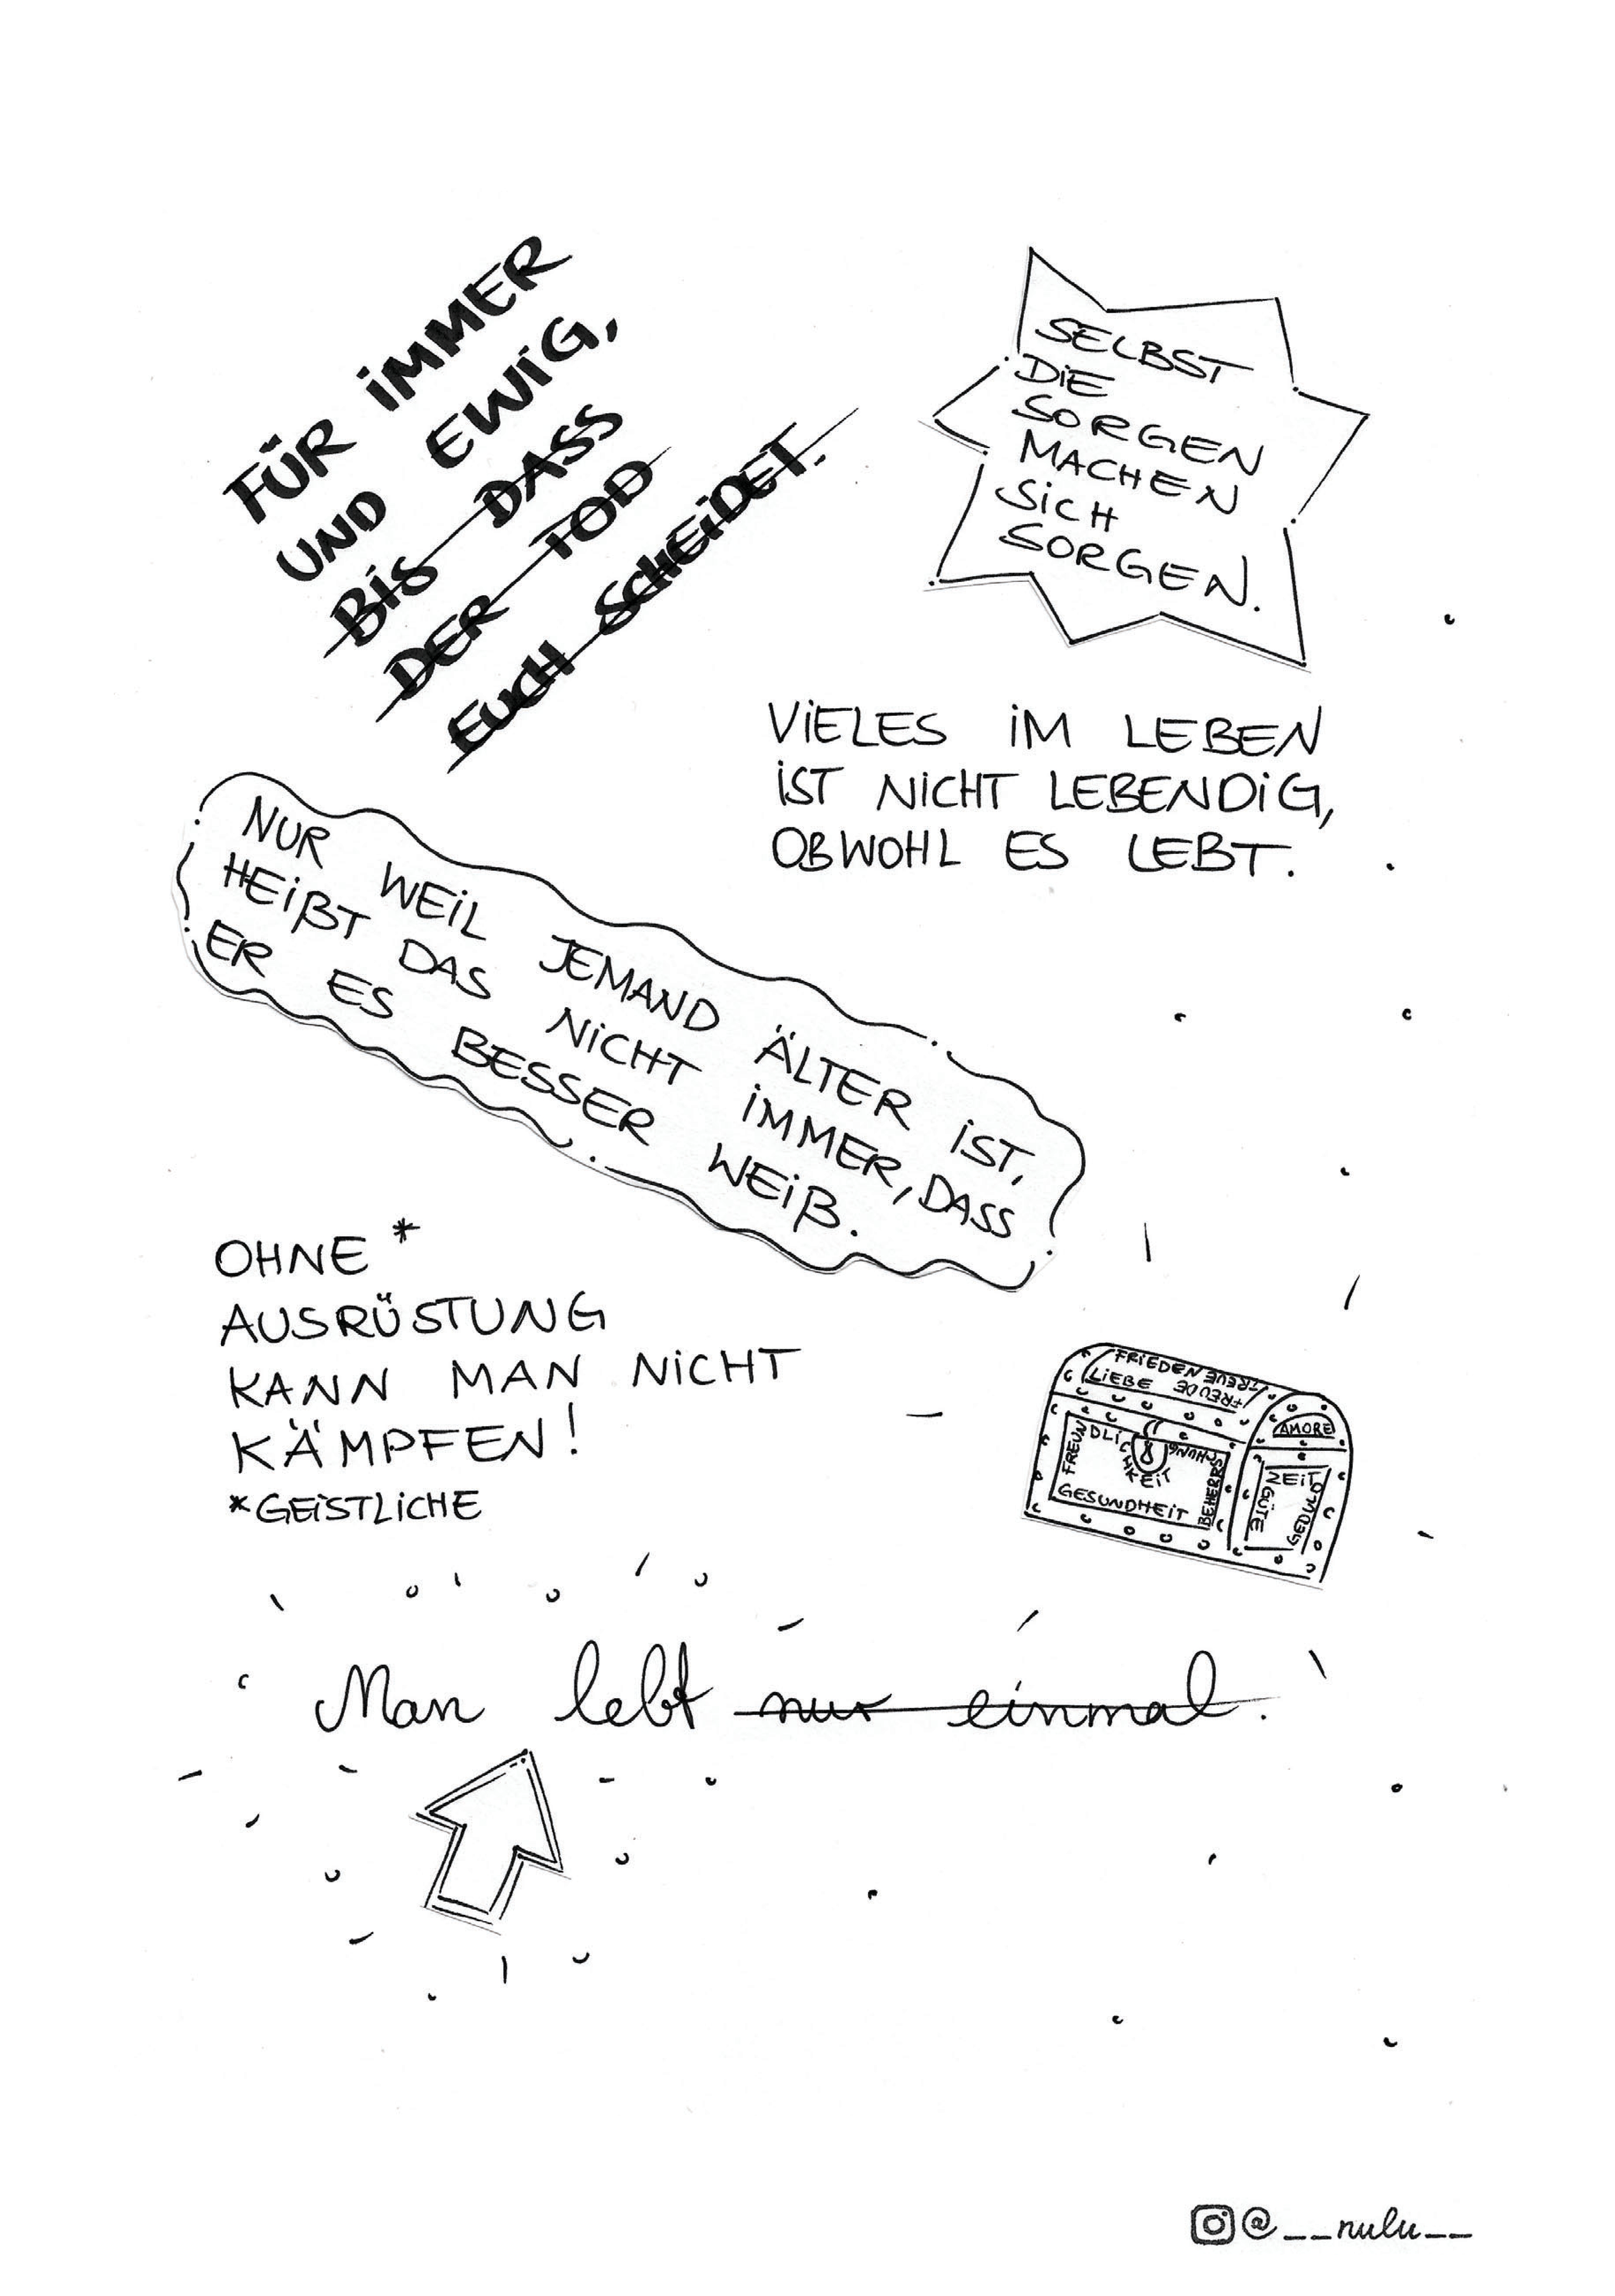 FÜR IMMER
UND EWIG,
BIS DASS
DER TOD
EUCH SCHEIDET.
SELBST
DIE
SORGEN
MACHEN
SICH
SORGEN.
VIELES IM LEBEN
IST NICHT LEBENDIG,
OBWOHL ES LEBT.
NUR WEIL JEMAND ÄLTER IST,
HEIßT DAS NICHT IMMER, DASS
ER ES BESSER WEIß.
OHNE *
AUSRÜSTUNG
KANN MAN NICHT
KÄMPFEN!
*GEISTLICHE
FRIEDEN TREUE
LIEBE FREUDE
AMORE
FREUNDLICHKEIT
BEHERRSCHUNG
GESUNDHEIT
ZEIT
GÜTE
GEDULD
Man lebt nur einmal.
@__nulu__